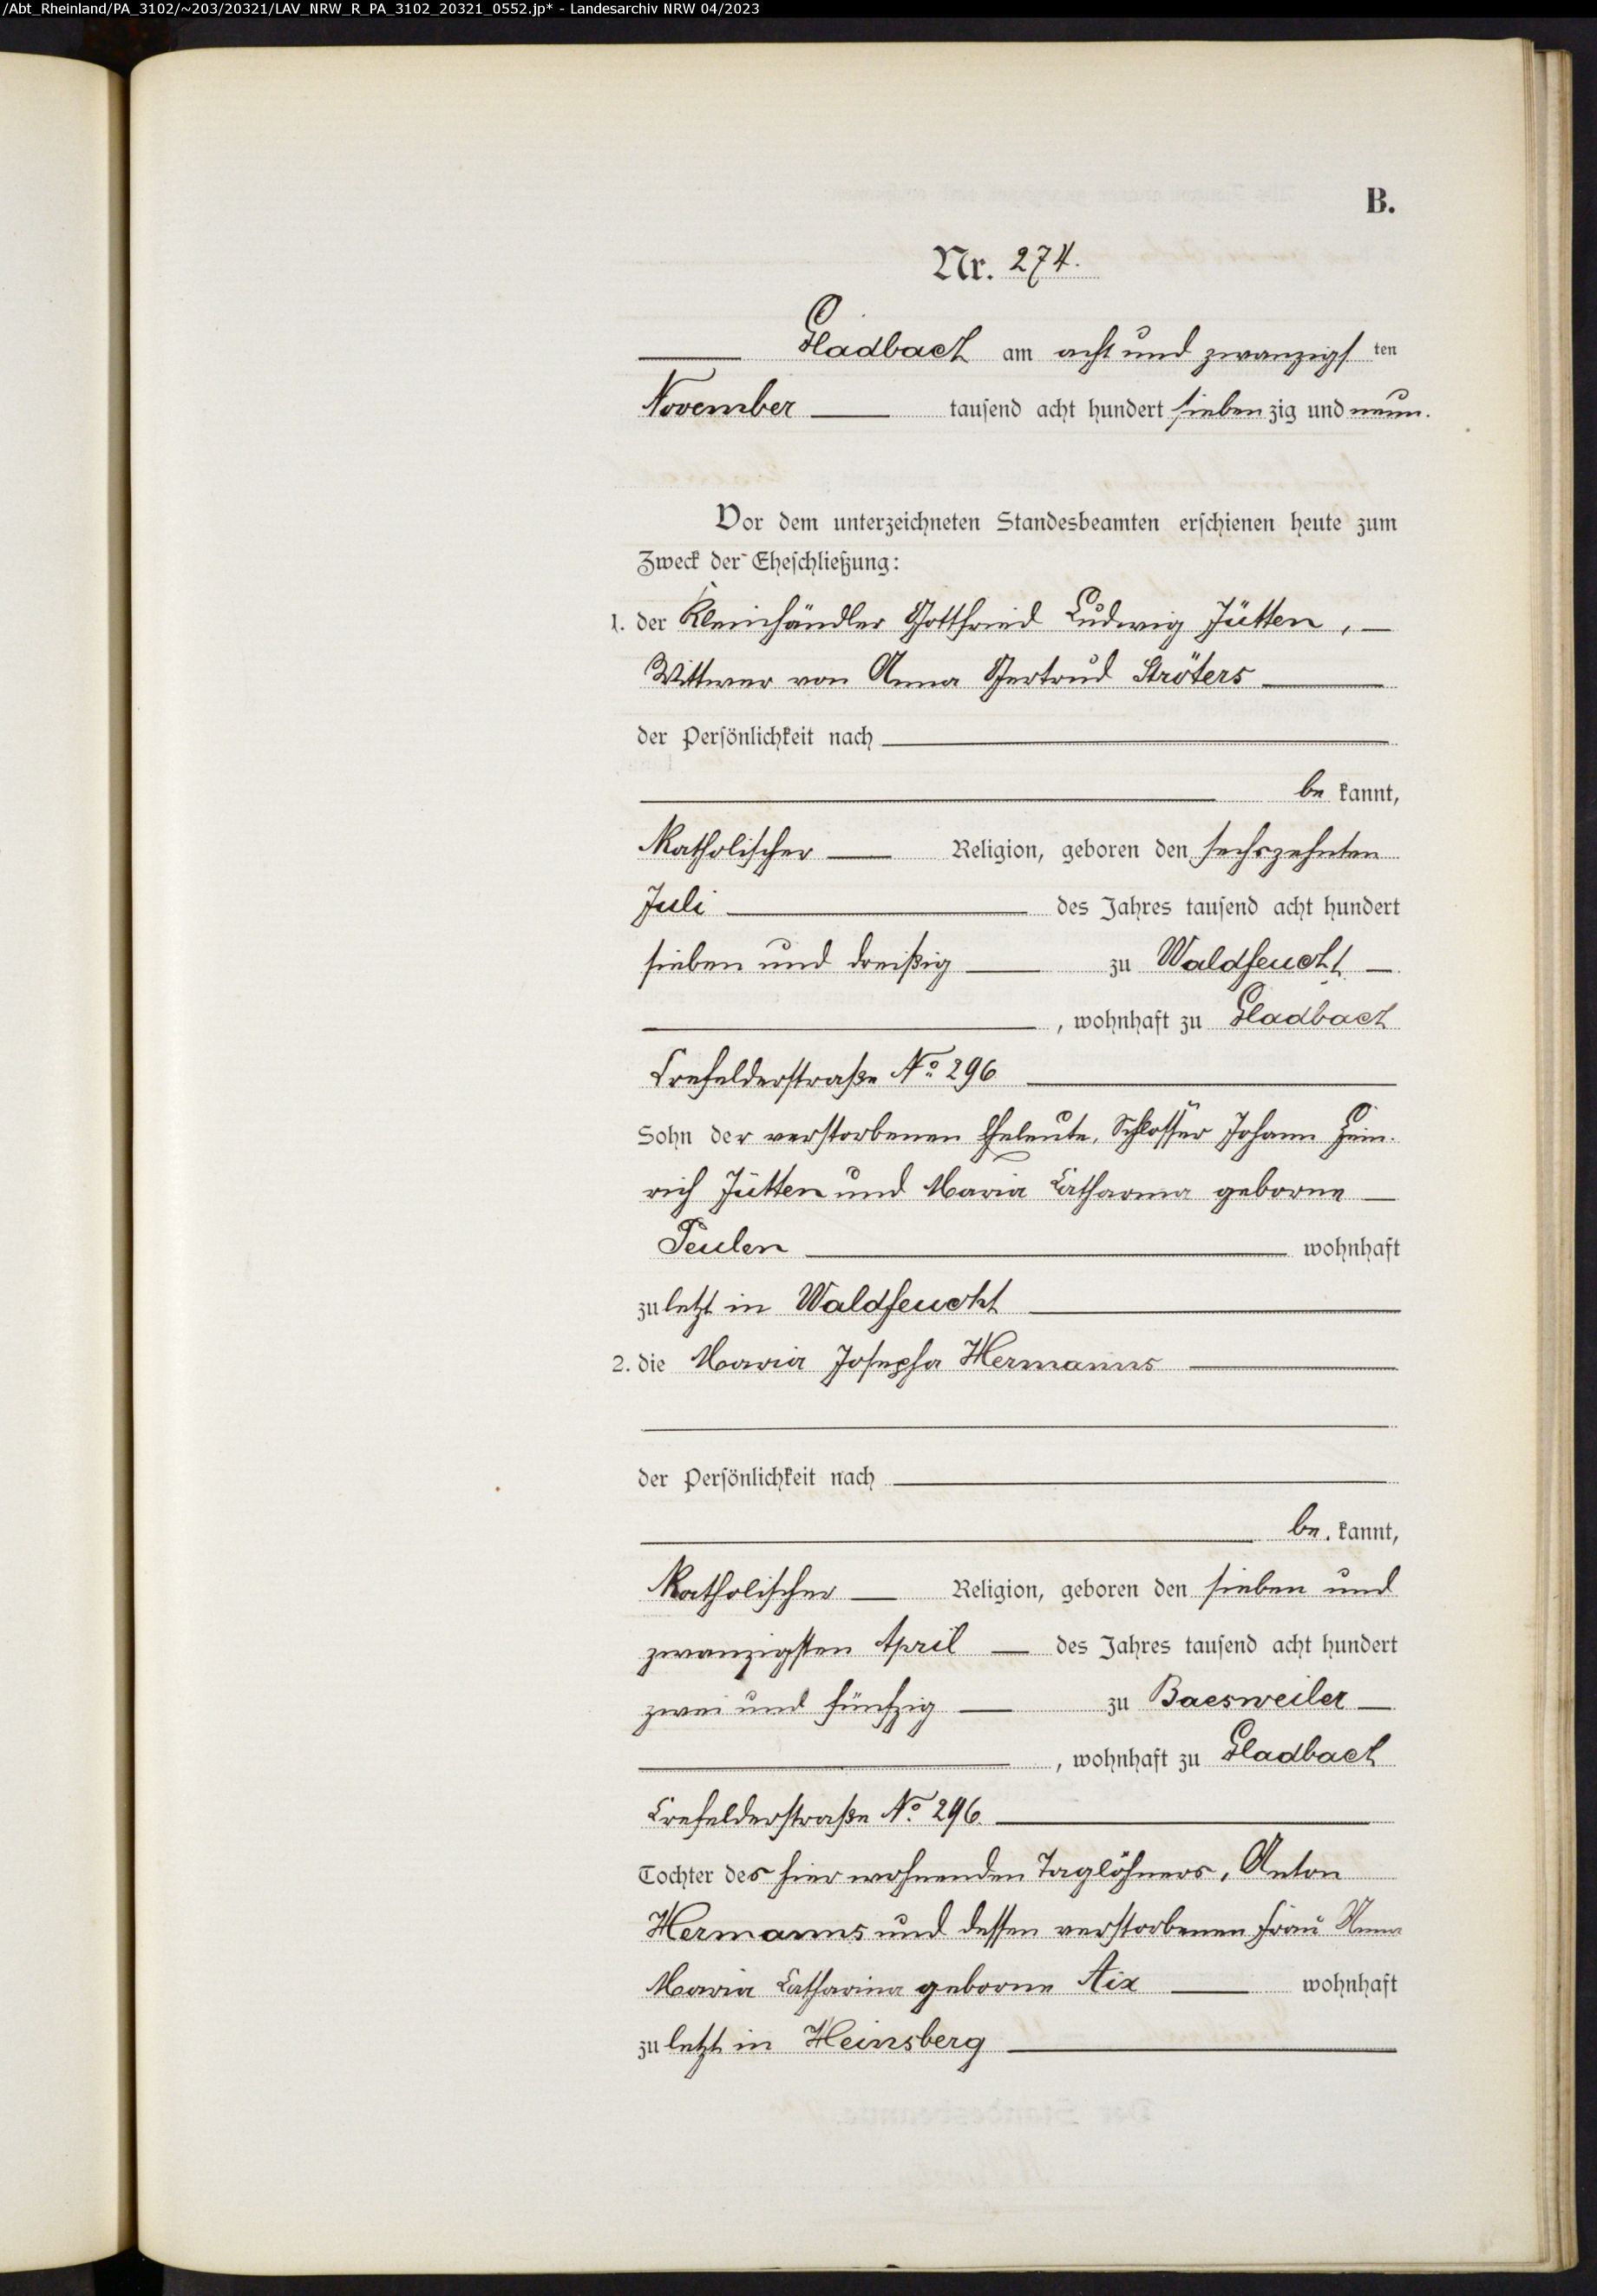 /Abt_Rheinland/PA_3102/~203/20321/LAV_NRW_R_PA_3102_20321_0552.jp* - Landesarchiv NRW 04/2023
B.
Nr. 274.
Gladbach am acht und zwanzigs ten
November tausend acht hundert sieben zig und neun.
Vor dem unterzeichneten Standesbeamten erschienen heute zum
Zweck der Eheschließung:
1. der Kleinhändler Gottfried Ludwig Jütten,
Wittwer von Anna Gertrud Ströters
der Persönlichkeit nach
be kannt,
Katholischer Religion, geboren den sechszehnten
Juli des Jahres tausend acht hundert
sieben und dreißig zu Waldfeucht
, wohnhaft zu Gladbach
Crefelderstraße No 296
Sohn der verstorbenen Eheleute, Schlosser Johann Hein-
rich Jütten und Maria Catharina geborne
Peulen wohnhaft
zuletzt in Waldfeucht
2. die Maria Josepha Hermanns
der Persönlichkeit nach
be kannt,
Katholischer Religion, geboren den sieben und
zwanzigsten April des Jahres tausend acht hundert
zwei und fünfzig zu Baesweiler
, wohnhaft zu Gladbach
Crefelderstraße No 296.
Tochter des hier wohnenden Taglöhners, Anton
Hermanns und dessen verstorbenen Frau Anna
Maria Catharina geborne Aix wohnhaft
zuletzt in Heinsberg